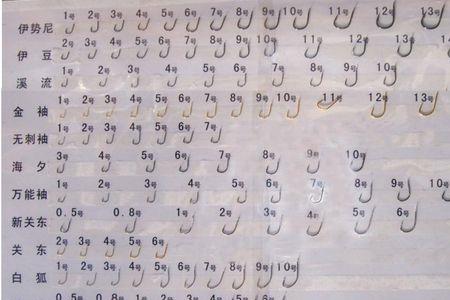 伊势尼 1号 2号 3号 4号 5号 6号 7号 8号 9号 10号 11号 12号 13号
伊豆 2号 3号 4号 5号 6号 7号 8号 9号 10号 11号 12号 13号
溪流 1号 2号 3号 4号 5号 6号 7号 8号 9号
金袖 1号 2号 3号 4号 5号 6号 7号 8号 9号 10号 11号 12号 13号
无刺袖 1号 2号 3号 4号 5号 6号 7号
海夕 3号 4号 5号 6号 7号 8号 9号 10号
万能袖 1号 2号 3号 4号 5号 6号 7号 8号 9号 10号
新关东 0.5号 0.8号 1号 2号 3号 4号 5号 6号
关东 2号 3号 4号 5号 6号
白狐 1号 2号 3号 4号 5号 6号 7号 8号 9号 10号
0.5号 0.8号 1号 2号 3号 4号 5号 6号